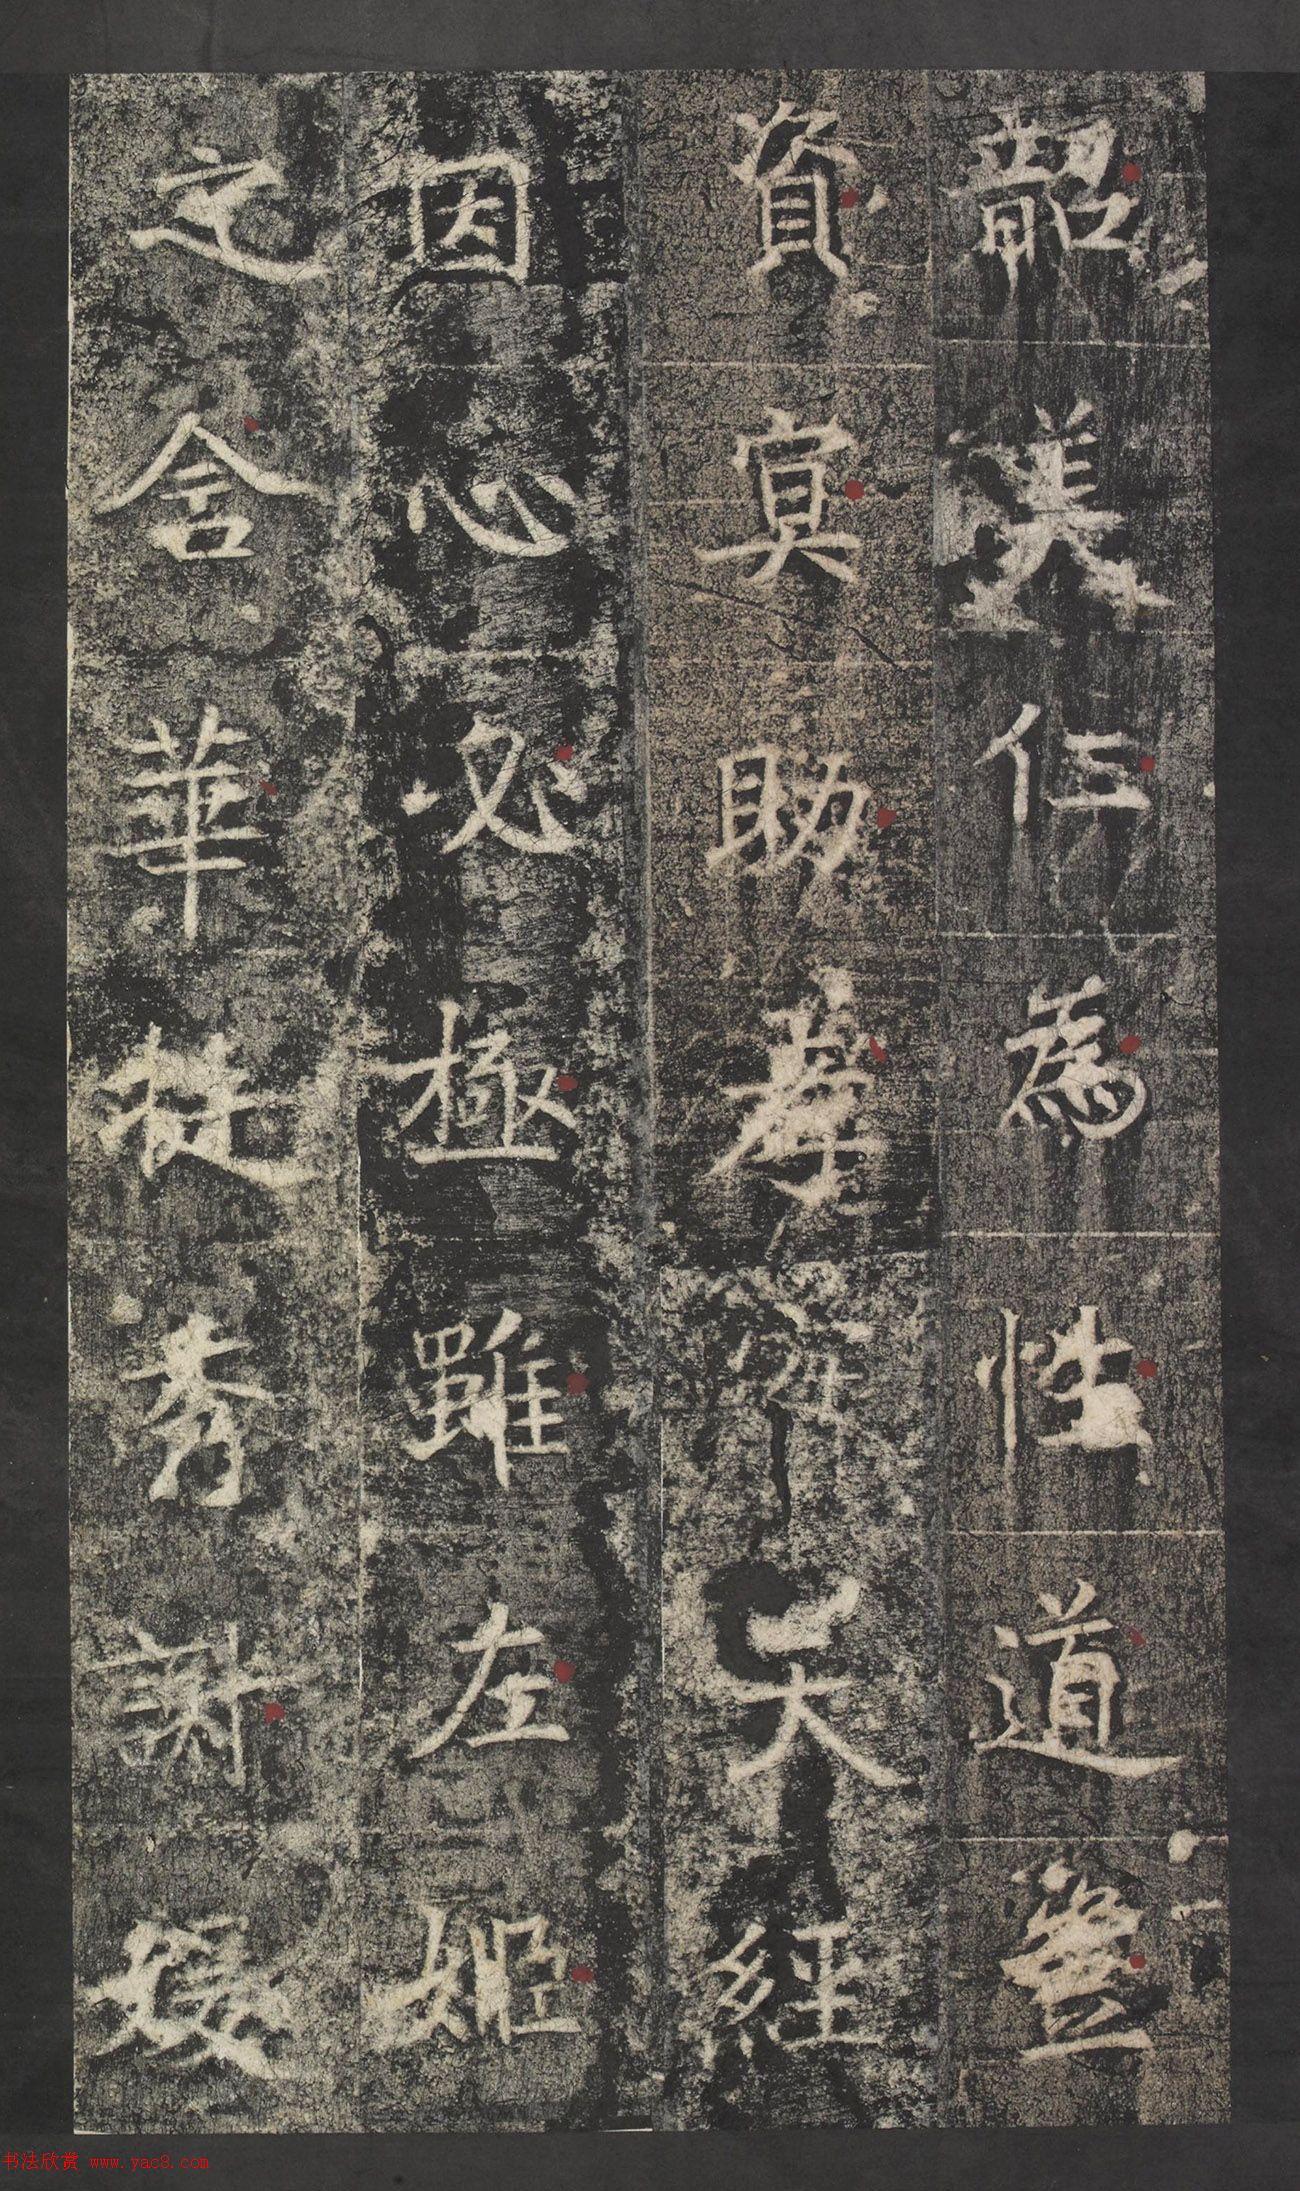 韶美仁為性道豈
資冥助孝天經
因心必極雖左姬
之含華挺秀謝媛
书法欣赏 www.yac8.com